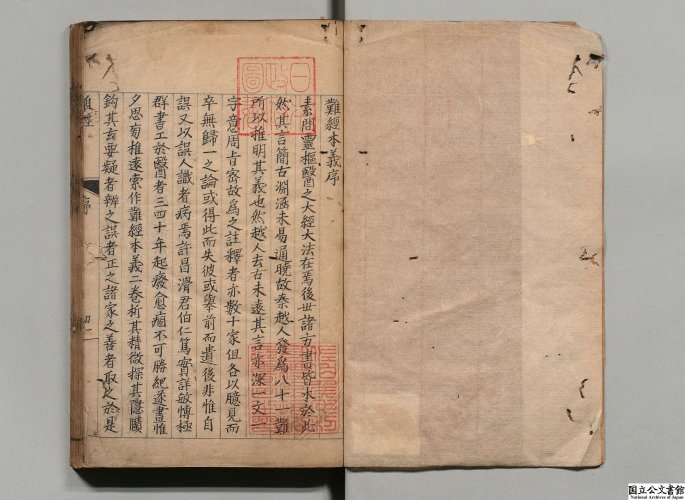 難經本義序
素問靈樞醫之大經大法在焉後世諸方書皆本於此
然其言簡古淵涵未易通曉故秦越人發爲八十一難
所以推明其義也然越人去古未遠其言亦深一文一
字意周旨密故爲之註釋者亦數十家但各以臆見而
卒無歸一之論或得此而失彼或舉前而遺後非惟自
誤又以誤人識者病焉許昌滑君伯仁篤實詳敏博極
群書工於醫者三四十年起廢愈痼不可勝紀遂晝惟
夕思旁推遠索作難經本義二卷析其精微探其隱賾
鉤其玄要疑者辨之誤者正之諸家之善者取之於是
難經
序
国立公文書館
National Archives of Japan